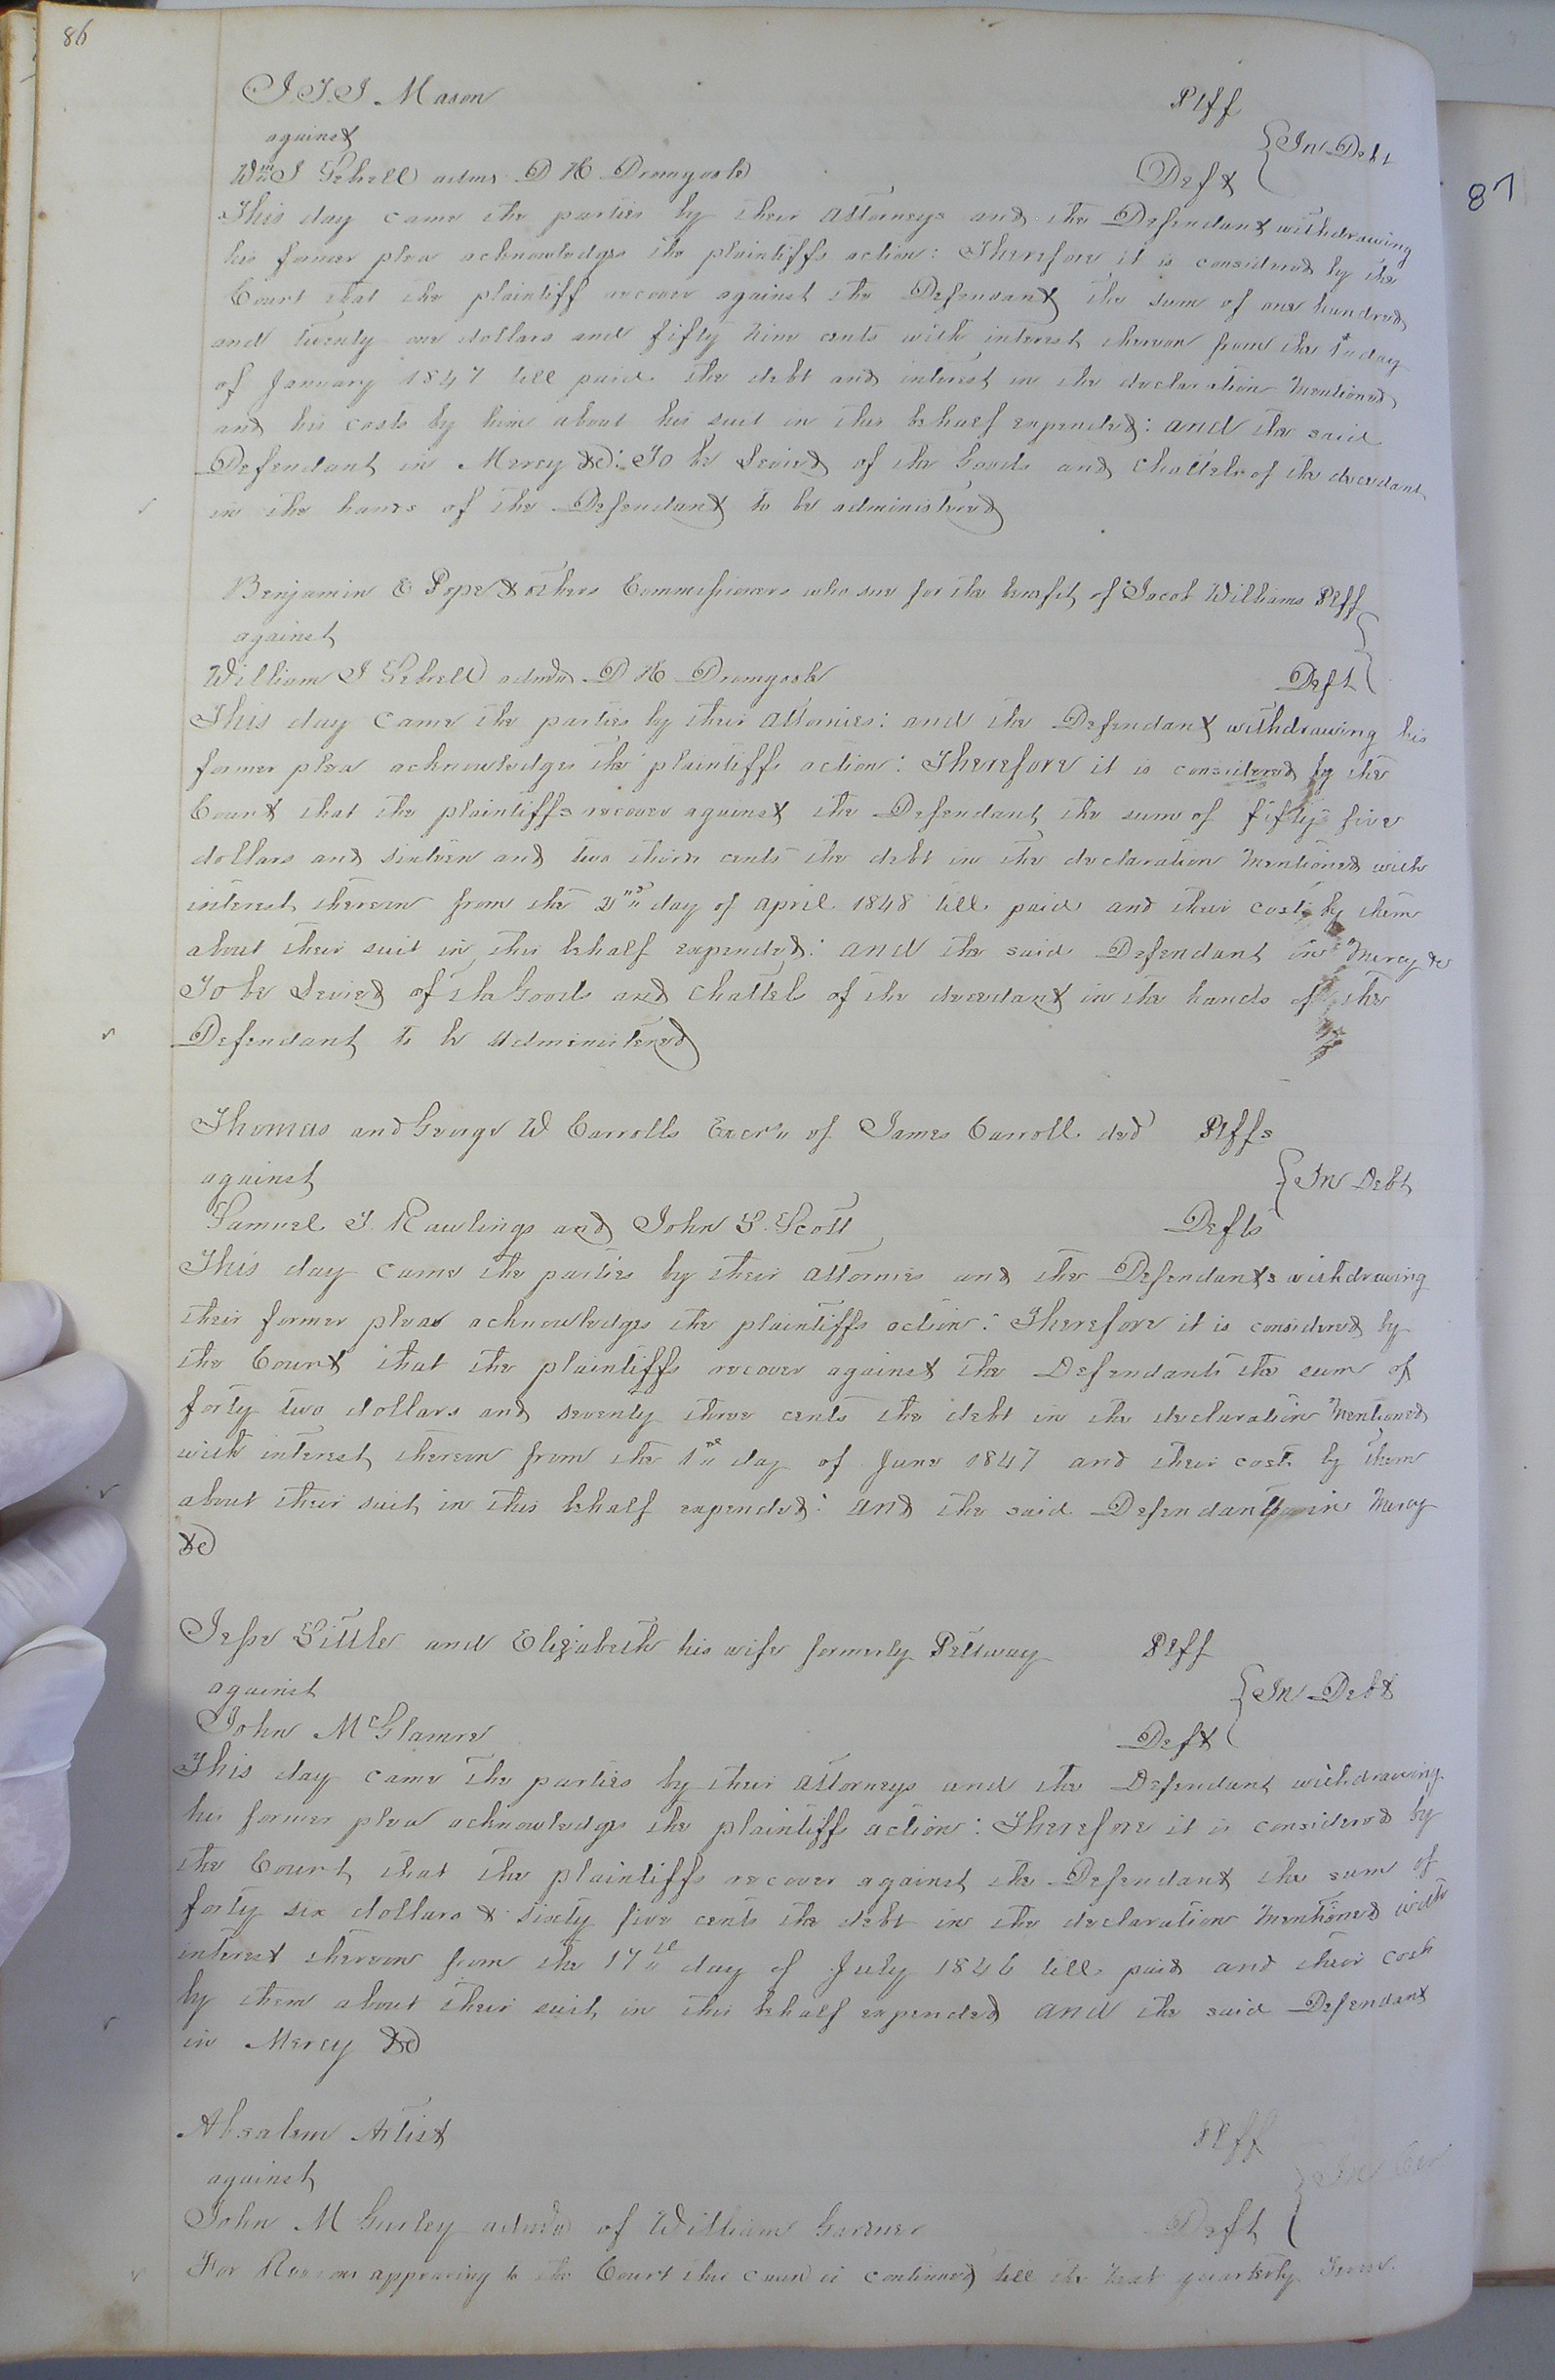 86
J. T. J. Mason Plff
against } In Debt
Wm J Sebrell adms D H Dromgoole Deft
This day came the parties by their attorneys and the Defendant withdrawing
his former plea acknowledges the plaintiffs action: Therefore it is considered by the
Court that the plaintiff recover against the Defendant the sum of one hundred
and twenty one dollars and fifty nine cents with interest thereon from the 1st day
of January 1847 till paid the debt and interest in the declaration mentioned
and his costs by him about his suit in this behalf expended: and the said
Defendant in Mercy &c: To be Levied of the Goods and Chattels of the decedant
in the hands of the Defendant to be administered
Benjamin E Pope & others Commissioners who sue for the benefit of Jacob Williams Plff
against
William J Sebrell admr D H Dromgoole Deft
This day came the parties by their attornies: and the Defendant withdrawing his
former plea acknowledges the plaintiffs action: Therefore it is considered by the
Court that the plaintiffs recover against the Defendant the sum of fifty five
dollars and sixteen and two thirds cents the debt in the declaration mentioned with
interest thereon from the 2nd day of april 1848 till paid and their costs by them
about their suit in this behalf expended: and the said Defendant in mercy &c
To be Levied of the Goods and Chattels of the decedant in the hands of the
Defendant to be administered
Thomas and George W Carrolls Excrs of James Carroll decd Plffs
against } In Debt
Samuel J. Rawlings and John S. Scott Defts
This day came the parties by their attornies and the Defendants withdrawing
their former pleas acknowledges the plaintiffs action: Therefore it is considered by
the Court that the plaintiffs recover against the Defendants the sum of
forty two dollars and seventy three cents the debt in the declaration mentioned
with interest thereon from the 1st day of June 1847 and their costs by them
about their suit in this behalf expended: and the said Defendants in mercy
&c
Jesse Little and Elizabeth his wife formerly Pettway Plff
against } In Debt
John McGlamre Deft
This day came the parties by their attorneys and the Defendant withdrawing
his former plea acknowledges the plaintiffs action: Therefore it is considered by
the Court that the plaintiffs recover against the Defendant the sum of
forty six dollars & sixty five cents the debt in the declaration mentioned with
interest thereon from the 17th day of July 1846 till paid and their costs
by them about their suit in this behalf expended and the said Defendant
in Mercy &c
Absalem Artist Plff
against
John M Gurley admr of William Gardner Deft
For Reasons appearing to the Court this cause is continued till the next quarterly Term.
87